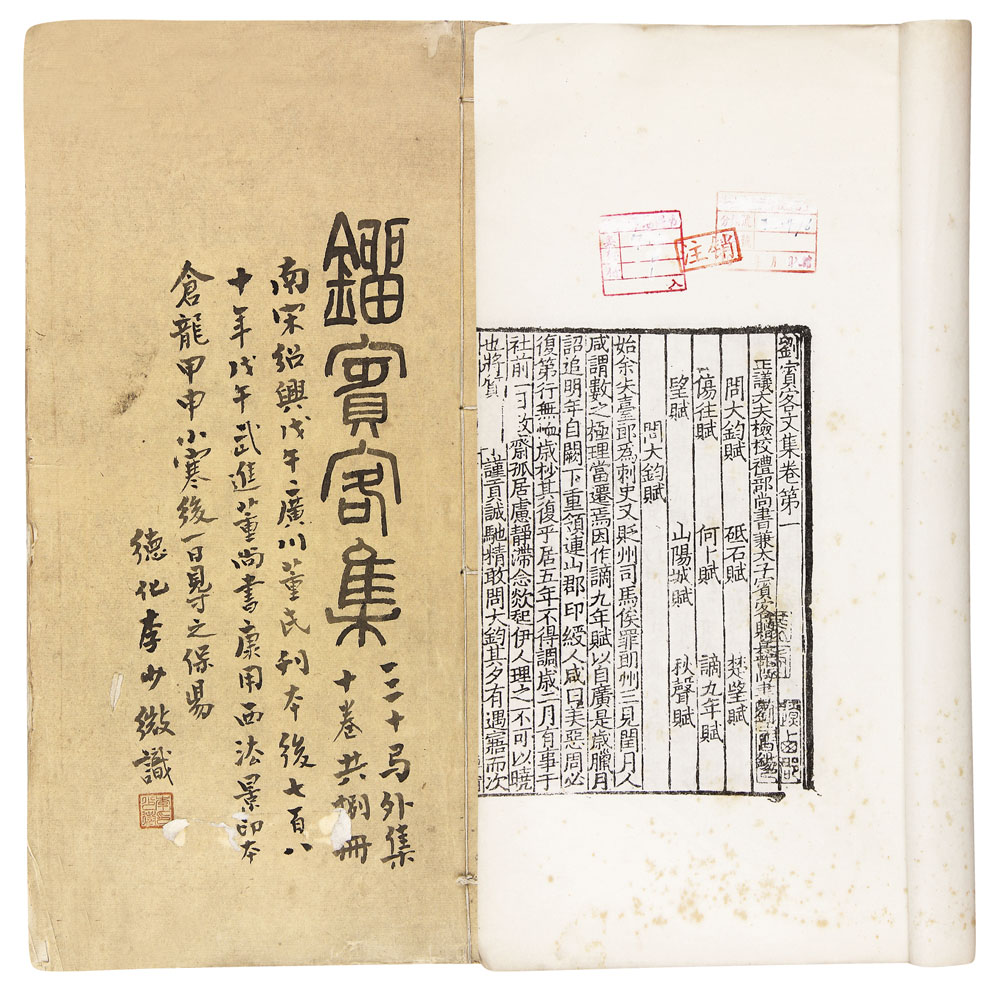 鎦賓客集
三十弓外集
十卷共捌冊
南宋紹興戊午廣川董氏刊本後七百八
十年戊午武進董尚書康用西法景印本
倉龍甲申小寒後一日㝵之保昜
德化李少微識
注销
入
劉賓客文集卷第一
正議大夫檢校禮部尚書兼太子賓客贈
問大鈞賦 砥石賦 楚望賦
傷往賦 何卜賦 謫九年賦
望賦 山陽城賦 秋聲賦
問大鈞賦
始余失臺郎爲刺史又貶州司馬俟罪朗州三見閏月人
咸謂數之極理當遷焉因作謫九年賦以自廣是歲臘月
詔追明年自闕下重領連山郡印綬人咸曰美惡周必
復第行無恤歲杪其復乎居五年不得調歲二月有事于
社前一日致齋孤居慮靜滯念欻起伊人理之不可以曉
也將質 謹貢誠馳精敢問大鈞其夕有遇寤而次